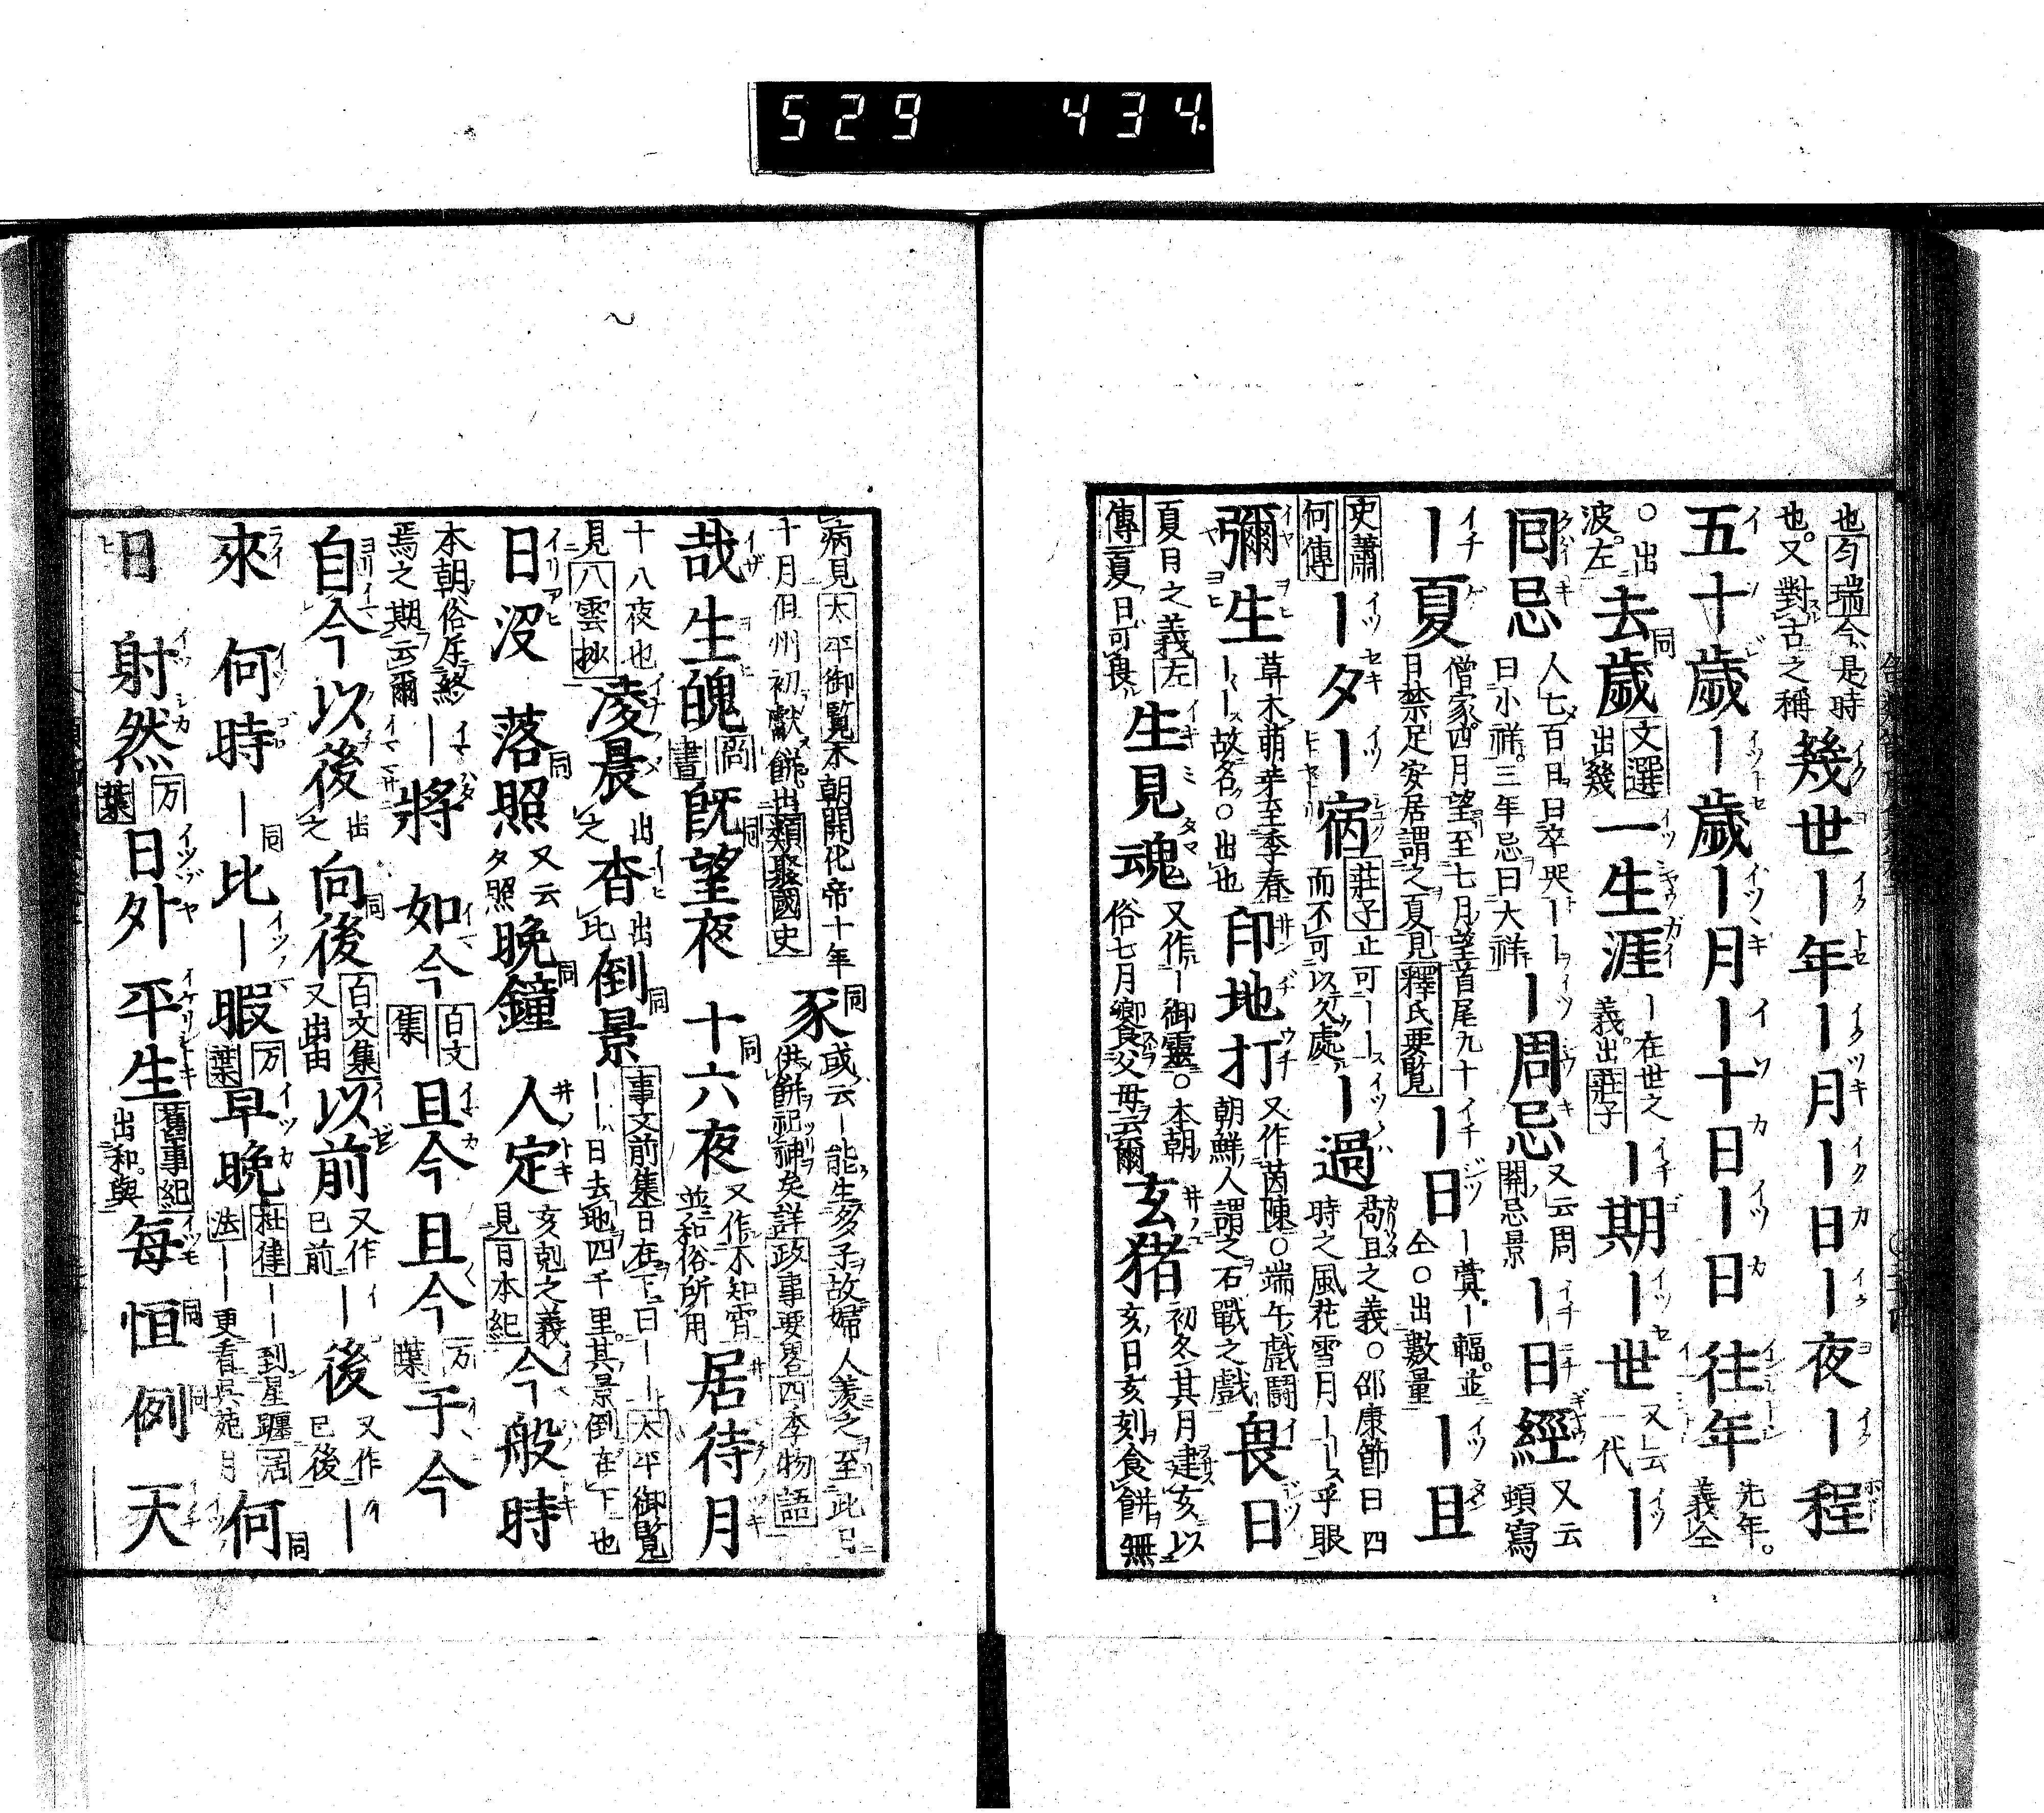 529 434.
也匀瑞今是時
也。又對古之稱
幾世ー年ー月ー日ー夜ー程
五十歲ー歲ー月ー十日ー日往年先年。義仝
○出波。左去歲文選出幾一生涯ー在世之義。出莊子ー期ー世又云一代ー
回忌人七百日曰卒哭ーー曰小祥。三年忌曰大祥ー周忌又云周関忌景ー日經又云頓寫
ー夏僧家。四月望至七月望首尾九十日禁足安居謂之夏見釋氏要覽ー日ー蓂ー輻。並仝○出數量ー且
史蕭何傳ー夕ー宿莊子止可ーー而不可以久處ー過苟且之義○邵康節曰四時之風花雪月ーー乎眼
彌生草木萌芽至季春ーー故名○出也印地打又作茵陳○端午戲鬪朝鮮人謂之石戰之戲畏日
夏日之義左傳夏日可畏生見魂又作ー御靈○本朝俗七月饗父母云爾玄猪初冬其月建亥以亥日亥刻食餅無
病見太平御覽本朝開化帝十年十月但州初獻餅出類聚國史豕或云ー能生多子故婦人羨之至此日供餅祀神矣詳政事要畧四季物語
哉生魄尚書旣望夜十六夜又作不知宵並和俗所用居待月
十八夜也見八雲抄凌晨出之杳出比倒景事文前集日在下曰ーーーー日去地四千里。其景倒在下也太平御覽
日沒落照又云夕照晚鐘人定亥剋之義見日本紀今般時
本朝俗斥終焉之期云爾ー將如今白文集且今且今万葉于今
自今以後出之向後白文集又出由以前又作已前ー後又作已後ー
來何時ー比ー暇万葉早晚杜律ーー到星躔居法ーー更看吳苑月何
日射然万葉日外平生舊事紀出和。與每恒例天